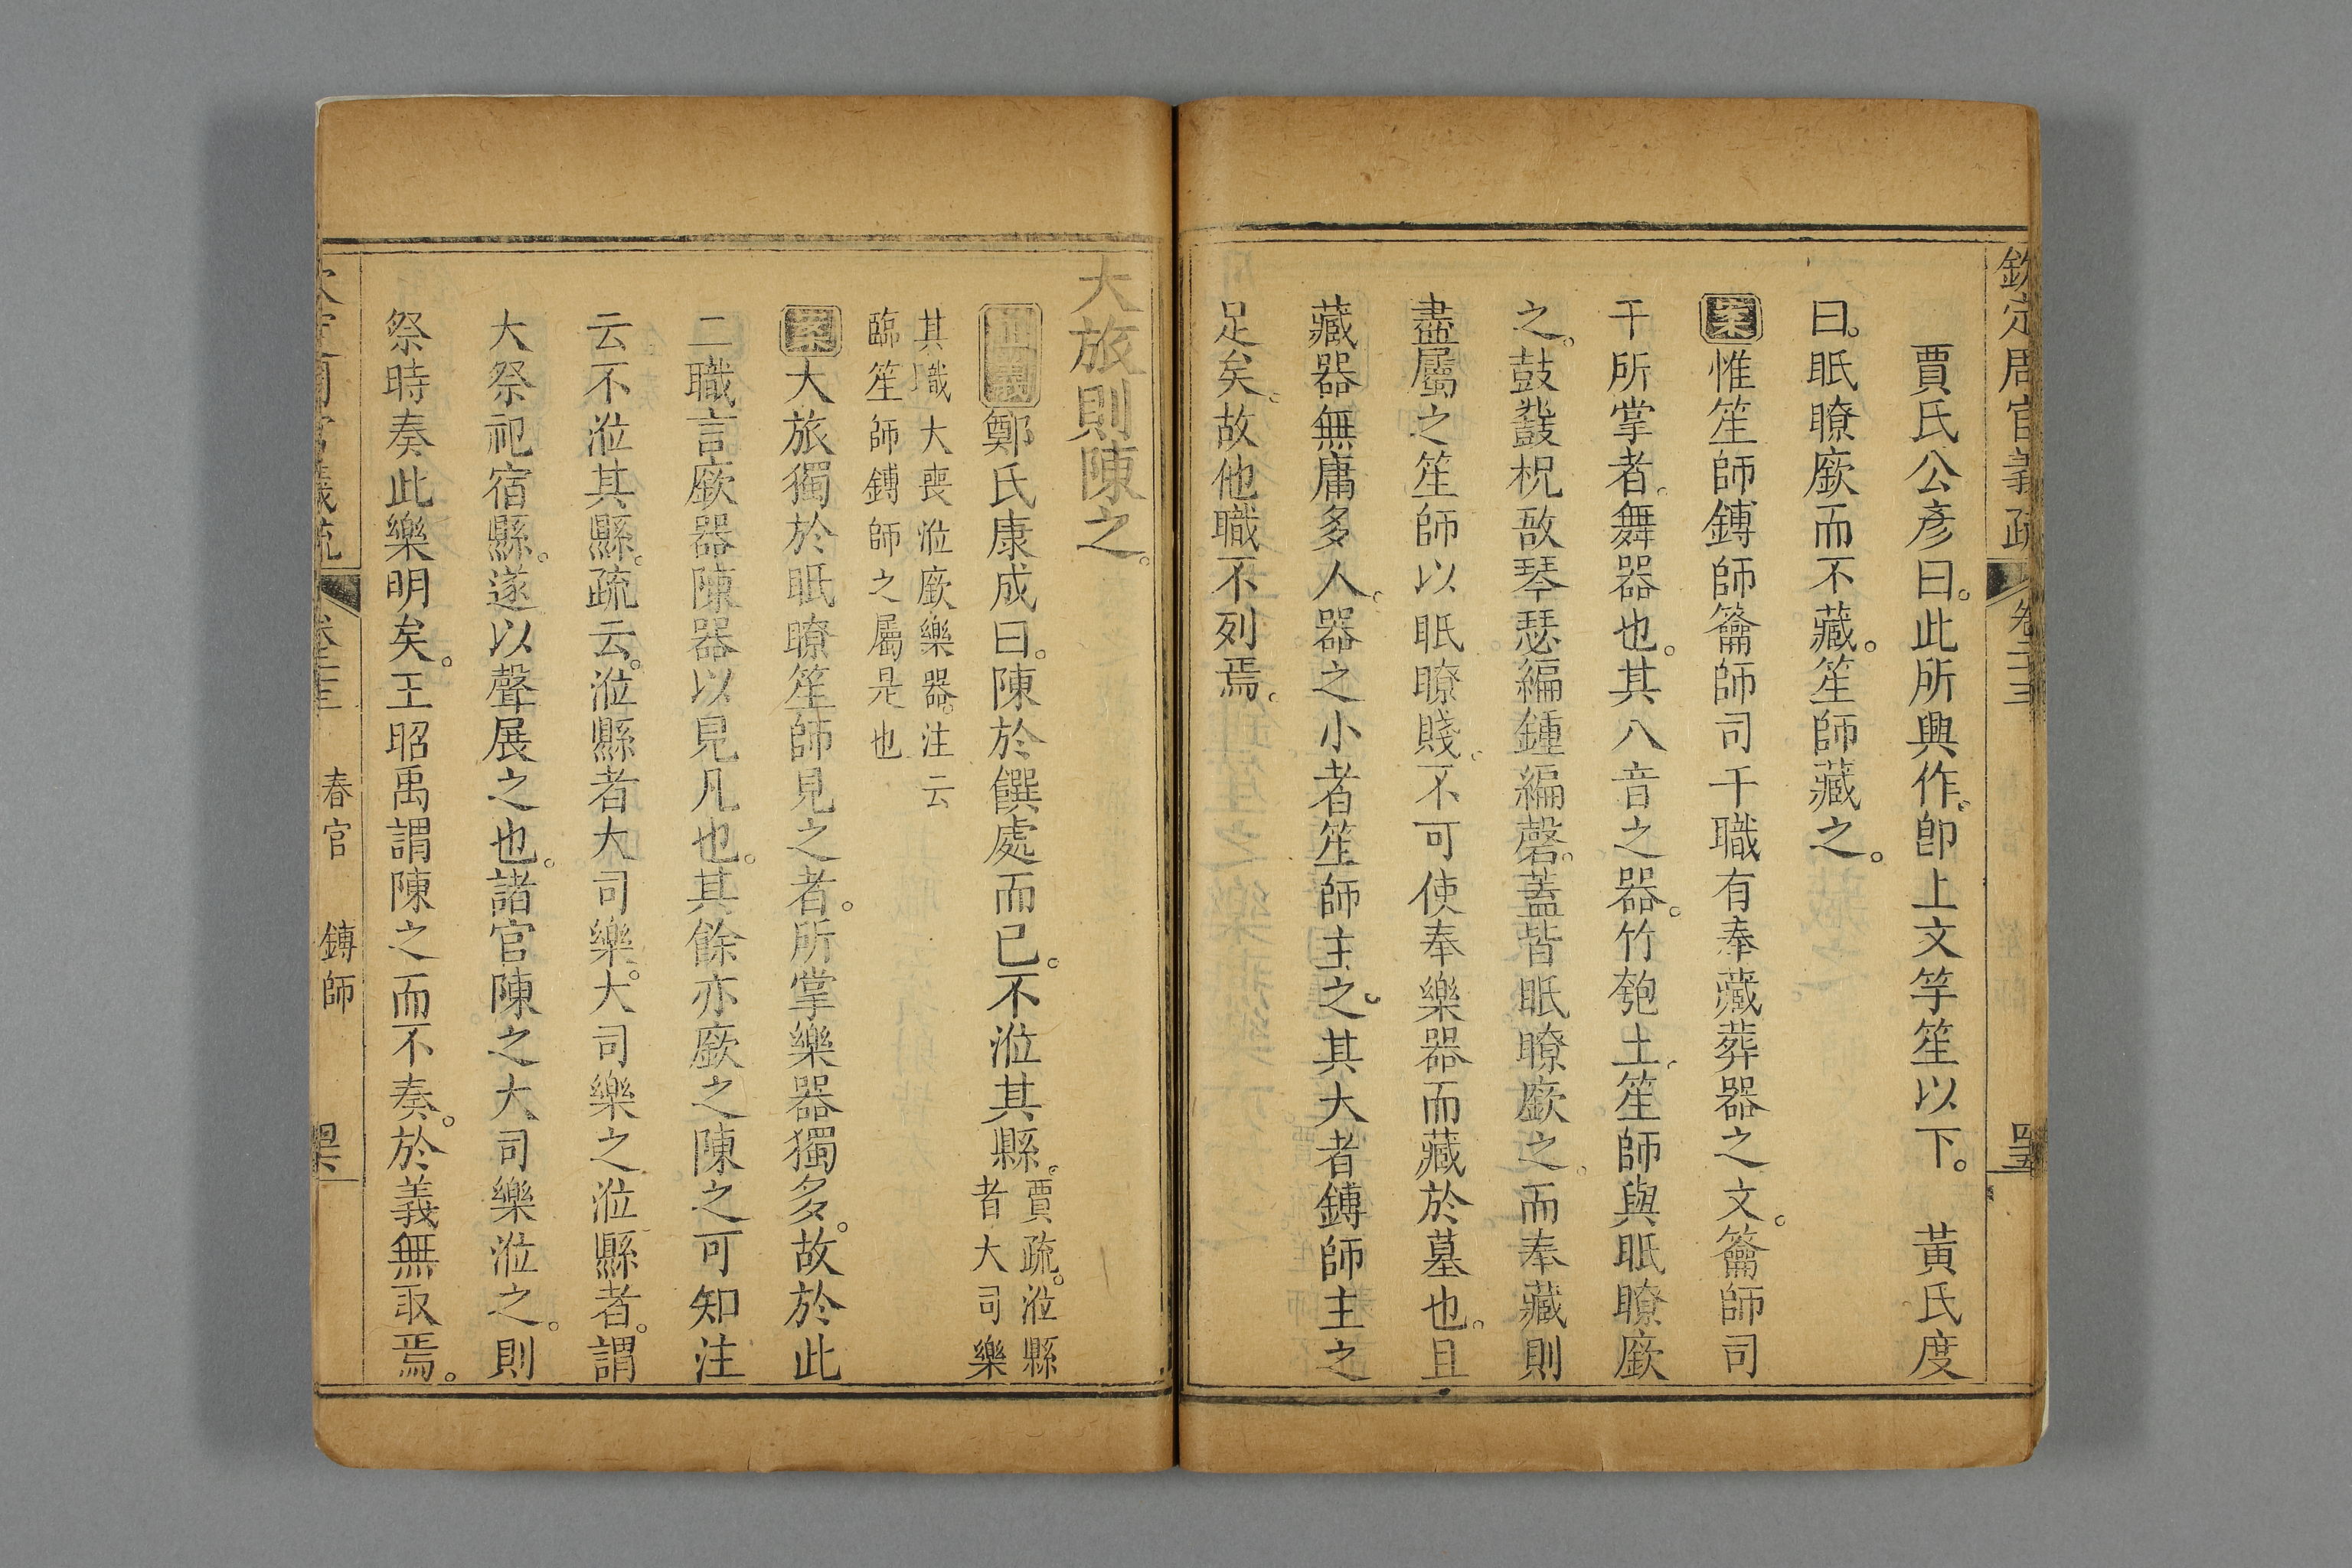 欽定周官義疏 卷二十三
賈氏公彥曰。此所興作。卽上文竽笙以下。 黃氏度
曰。眡瞭廞而不藏。笙師藏之。
案惟笙師鎛師籥師司干職有奉藏葬器之文。籥師司
干所掌者。舞器也。其八音之器。竹匏土。笙師與眡瞭廞
之。鼓鼗柷敔琴瑟編鍾編磬。蓋皆眡瞭廞之。而奉藏則
盡屬之笙師以眡瞭賤。不可使奉樂器而藏於墓也。且
藏器無庸多人。器之小者笙師主之。其大者鎛師主之
足矣。故他職不列焉。
大旅則陳之。
鄭氏康成曰。陳於饌處而已。不涖其縣。賈疏。涖縣
者大司樂
其職大喪涖廞樂器。注云
臨笙師鎛師之屬是也
案大旅獨於眡瞭笙師見之者。所掌樂器獨多。故於此
二職言廞器陳器以見凡也。其餘亦廞之陳之可知注
云不涖其縣。疏云。涖縣者大司樂。大司樂之涖縣者。謂
大祭祀宿縣。遂以聲展之也。諸官陳之大司樂涖之。則
祭時奏此樂明矣。王昭禹謂陳之而不奏。於義無取焉。
春官 鎛師